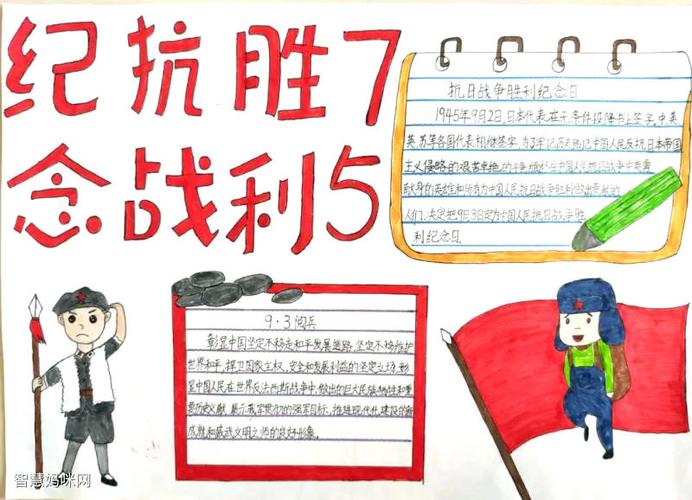 纪抗胜7
念战利5
抗日战争胜利纪念日
1945年9月2日,日本代表在无条件投降书上签字,中美
英苏等各国代表相继签字,为了牢记历史,铭记中国人民反抗日本帝国
主义侵略的艰苦卓绝的斗争
献身的英雄和所有为中国人民抗日战争胜利做出贡献的
人们,决定把9月3日定为中国人民抗日战争胜
利纪念日.
9·3阅兵
彰显中国坚定不移走和平发展道路,坚定不移维护
世界和平,捍卫国家主权,安全和发展利益的坚定立场,彰
显中国人民在世界反法西斯战争中,做出的巨大民族牺牲和重
要历史贡献,展示我军
威武文明之师的良好形象.
智慧妈咪网